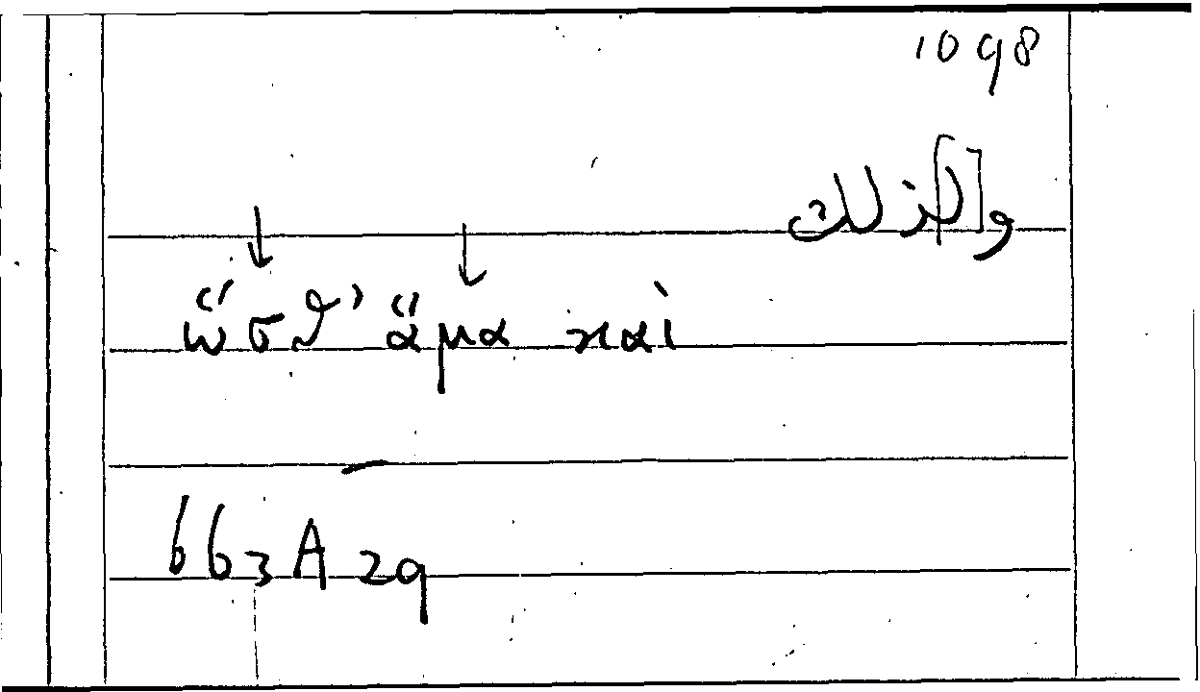 1098
و[ل]ذلك
ὥσθ’ ἅμα καὶ
663A29